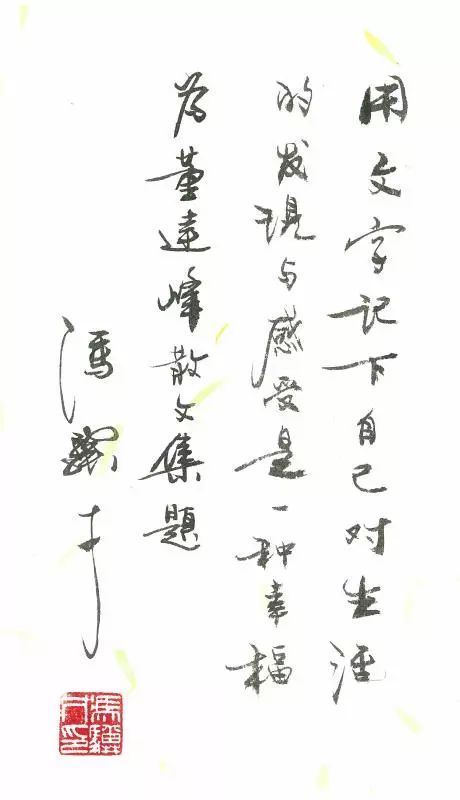 用文字记下自己对生活
的发现与感受是一种幸福
为董達峰散文集題
馮驥才
馮驥才印